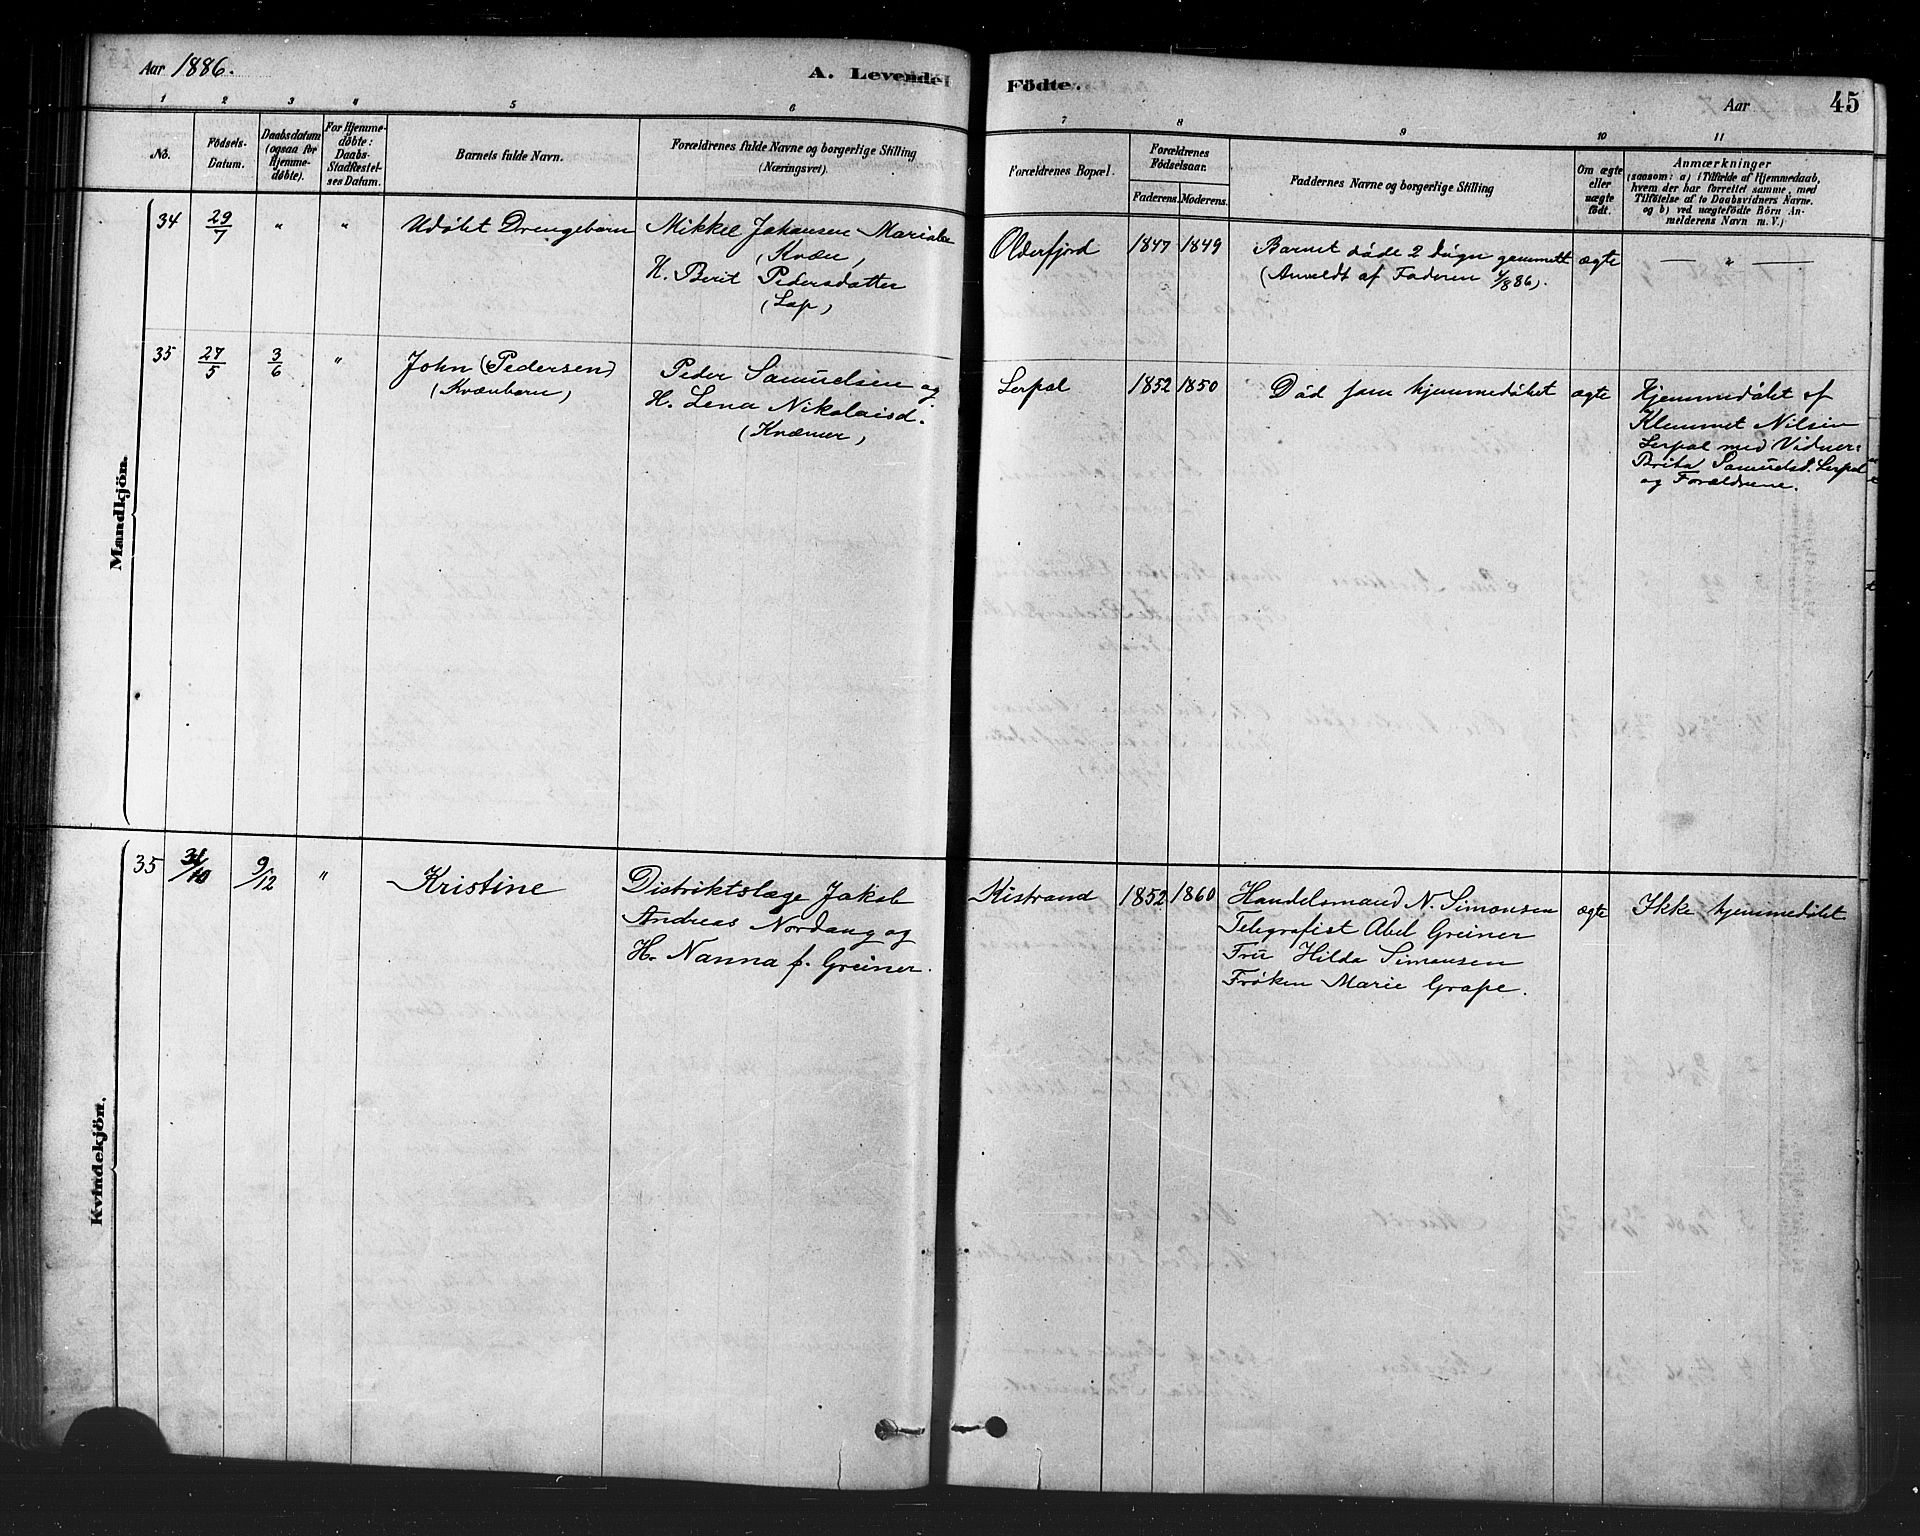 Aar 1886.
A. Levende
Födte.
Aar
45
1 2 3 4 5 6 7 8 9 10 11
No.
Födsels-
Datum.
Daabsdatum
(ogsaa for
Hjemme-
döbte).
For Hjemme-
döbte:
Daabs-
Stadfæstel-
ses Datum.
Barnets fulde Navn.
Forældrenes fulde Navne og borgerlige Stilling
(Næringsvei).
Forældrenes Bopæl.
Forældrenes
Födselsaar.
Faderens. Moderens.
Faddernes Navne og borgerlige Stilling
Om ægte
eller
uægte
födt.
Anmærkninger
(saasom: a) i Tilfælde af Hjemmedaab,
hvem der har forrettet samme, med
Tilföielse af to Daabsvidners Navne.
og b) ved uægtefödte Börn An-
melderens Navn m. V.)
Mandkjön.
34
29/7
" "
Udøbt Drengebarn
Mikkel Johansen
(Kvæn)
H. Berit Pedersdatter
(Lap)
Olderfjord
1847 1849
Barnet døde 2 Døgn gammelt
(Anmeldt af Faderen 4/8 86).
ægte
— " —
35
27/5
3/6
"
John (Pedersen)
(Kvænbarn)
Peder Samuelsen og
H. Lena Nikolaisd.
(Kvæner)
Lerpol
1852 1850
Død som hjemmedøbt
ægte
Hjemmedøbt af
Klemmet Nilsen
Lerpol med Vidner:
Brita Samuelsd. Lerpol
og Forældrene.
Kvindekjön.
35
31/10
9/12
"
Kristine
Distriktslæge Jakob
Andreas Nordang og
H. Nanna f. Greiner.
Kistrand
1852 1860
Handelsmand N. Simonsen
Telegrafist Abel Greiner
Fru Hilda Simonsen
Frøken Marie Grape.
ægte
Ikke hjemmedøbt